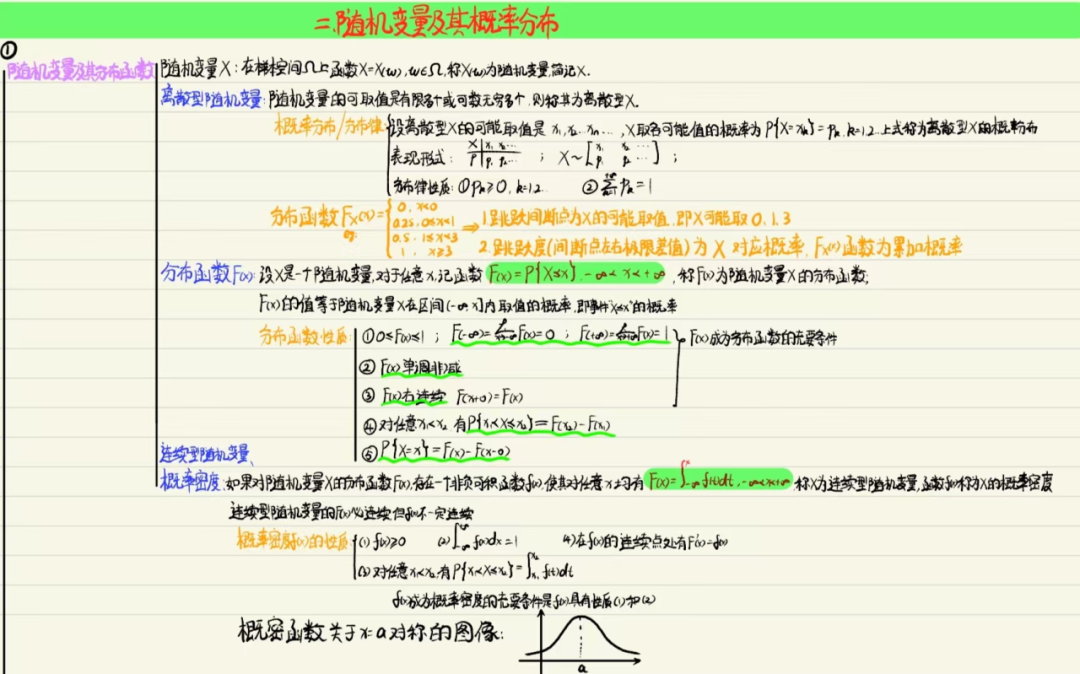 二.随机变量及其概率分布
①
随机变量及其分布函数
随机变量X：在样本空间Ω上函数X=X(ω),ω∈Ω,称X(ω)为随机变量,简记X.
离散型随机变量:随机变量的可取值是有限多个或可数无穷多个,则称其为离散型X.
概率分布/分布律 设离散型X的可能取值是 x₁,x₂…xₙ…,X取各可能值的概率为P{X=xₖ}=pₖ,k=1,2…上式称为离散型X的概率分布
表现形式： X|x₁ x₂… P|p₁ p₂… ； X~[x₁ x₂ … p₁ p₂ …] ；
分布律性质:①pₖ≥0,k=1,2… ②∑pₖ=1
分布函数Fx(x)= { 0, x<0
eg: 0.25, 0≤x<1 ⇒ 1.跳跃间断点为X的可能取值.即X可能取0.1.3
0.5, 1≤x<3
1, x≥3 2.跳跃度(间断点左右极限差值)为X对应概率.Fx(x)函数为累加概率
分布函数F(x)：设X是一个随机变量,对于任意x,记函数 F(x)=P{X≤x},-∞<x<+∞,称F(x)为随机变量X的分布函数;
F(x)的值等于随机变量X在区间(-∞,x]内取值的概率.即事件"X≤x"的概率
分布函数性质: ①0≤F(x)≤1； F(-∞)=lim F(x)=0；F(+∞)=lim F(x)=1 F(x)成为分布函数的充要条件
②F(x)单调非减
③F(x)右连续 F(x+0)=F(x)
④对任意x₁<x₂.有P{x₁<X≤x₂}=F(x₂)-F(x₁)
⑤P{X=x}=F(x)-F(x-0)
连续型随机变量、
概率密度:如果对随机变量X的分布函数F(x),存在一个非负可积函数f(x),使其对任意x均有 F(x)=∫₋∞ˣf(t)dt,-∞<x<+∞ 称X为连续型随机变量,函数f(x)称为X的概率密度
连续型随机变量的F(x)必连续但f(x)不一定连续
概率密度f(x)的性质 (1)f(x)≥0 (2)∫f(x)dx=1 (4)在f(x)的连续点处有F'(x)=f(x)
(3)对任意x₁<x₂,有P{x₁<X≤x₂}=∫f(t)dt
f(x)成为概率密度的充要条件是f(x)具有性质(1)和(2)
概密函数关于x=a对称的图像:
a